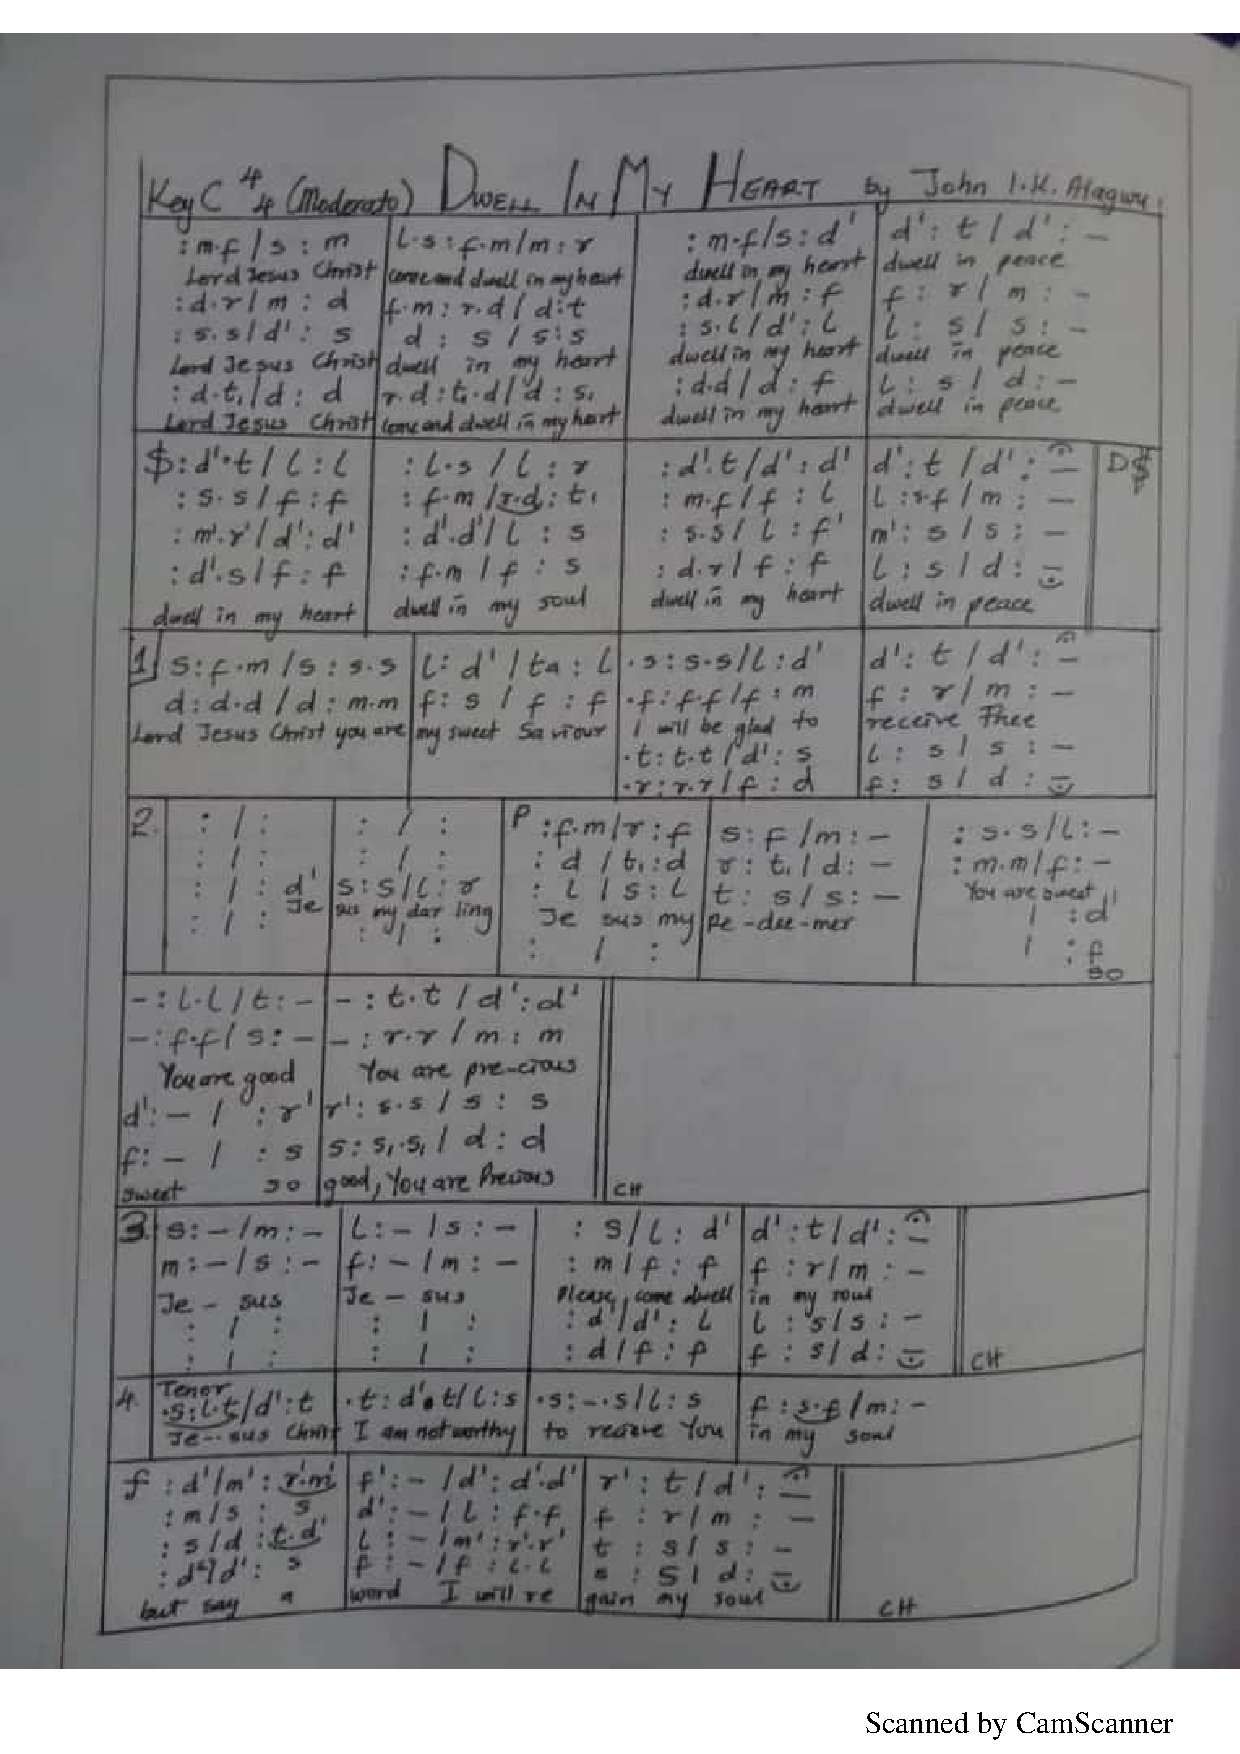 Key C 4/4 (Moderato) DWELL IN MY HEART by John I.K. Alagwu
:m.f / s : m   l.s : f.m / m : r   : m.f / s : d'   d' : t / d' : –
Lord Jesus Christ come and dwell in my heart dwell in my heart dwell in peace
:d.r / m : d   f.m : r.d / d : t   : d.r / m : f   f : r / m : –
: s.s / d' : s   d : s / s : s   : s.l / d' : l   l : s / s : –
Lord Jesus Christ dwell in my heart dwell in my heart dwell in peace
: d.t, / d : d   r.d : t,.d / d : s,   : d.d / d : f   l : s / d : –
Lord Jesus Christ come and dwell in my heart dwell in my heart dwell in peace
$ : d'.t / l : l   : l.s / l : r   : d'.t / d' : d'   d' : t / d' : –   D$
: s.s / f : f   : f.m / r.d : t,   : m.f / f : l   l : s.f / m : –
: m'.r' / d' : d'   : d'.d' / l : s   : s.s / l : f'   m' : s / s : –
: d'.s / f : f   : f.m / f : s   : d.r / f : f   l : s / d : –
dwell in my heart dwell in my soul dwell in my heart dwell in peace
1 s : f.m / s : s.s   l : d' / ta : l   .s : s.s / l : d'   d' : t / d' : –
d : d.d / d : m.m   f : s / f : f   .f : f.f / f : m   f : r / m : –
Lord Jesus Christ you are my sweet Saviour I will be glad to receive Thee
.t : t.t / d' : s   l : s / s : –
.r : r.r / f : d   f : s / d : –
2. : / :   : / :   P : f.m / r : f   s : f / m : –   : s.s / l : –
: / :   : / :   : d / t, : d   r : t, / d : –   : m.m / f : –
: / : d'   s : s / l : r   : l / s : l   t : s / s : –   You are sweet
Je sus my dar ling Je sus my Re-dee-mer   / : d'
: / :   : / :   : / :   / : f
so
– : l.l / t : –   – : t.t / d' : d'
– : f.f / s : –   – : r.r / m : m
You are good You are pre-cious
d' : – / : r'   r' : s.s / s : s
f : – / : s   s : s,.s, / d : d
sweet so good, You are Precious   CH
3. s : – / m : –   l : – / s : –   : s / l : d'   d' : t / d' : –
m : – / s : –   f : – / m : –   : m / f : f   f : r / m : –
Je - sus Je - sus Please, come dwell in my soul
: / :   : / :   : d' / d' : l   l : s / s : –
: / :   : / :   : d / f : f   f : s / d : –   CH
4. Tenor
.s : l.t / d' : t   .t : d'.t / l : s   .s : –.s / l : s   f : s.f / m : –
Je-sus Christ I am not worthy to receive You in my soul
f : d' / m' : r'.m'   f' : – / d' : d'.d'   r' : t / d' : –
: m / s : s   d' : – / l : f.f   f : r / m : –
: s / d : t.d'   l : – / m' : r'.r'   t : s / s : –
: d' / d' : s   f : – / f : l.l   s : s / d : –
but say a word I will re gain my soul   CH
Scanned by CamScanner